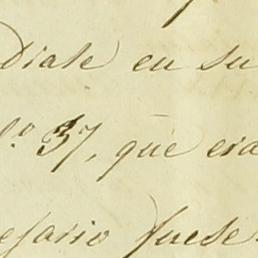 diate en su
lo 37, que era
esario fuese